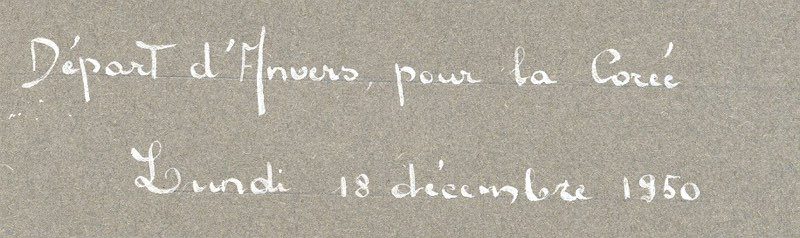 Départ d'Anvers, pour la Corée
Lundi 18 décembre 1950